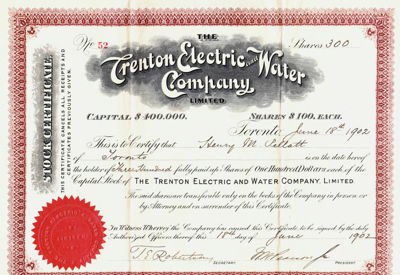 THE
No 52
Shares 300
Trenton Electric and Water
Company,
LIMITED.
CAPITAL $400.000.
SHARES $100. EACH.
Toronto June 18th 1902
This is to Certify that Henry M. Pellatt
of Toronto is on the date hereof
the holder of Three Hundred fully paid up Shares of One Hundred Dollars each of the
Capital Stock of THE TRENTON ELECTRIC AND WATER COMPANY, LIMITED.
The said shares are transferable only on the books of the Company in person or
by Attorney and on surrender of this Certificate.
In Witness Whereof the Company has caused this Certificate to be signed by the duly
Authorized Officers thereof this 18th day of June 1902
SECRETARY
PRESIDENT
STOCK CERTIFICATE
THIS CERTIFICATE CANCELS ALL RECEIPTS AND
CERTIFICATES PREVIOUSLY GIVEN.